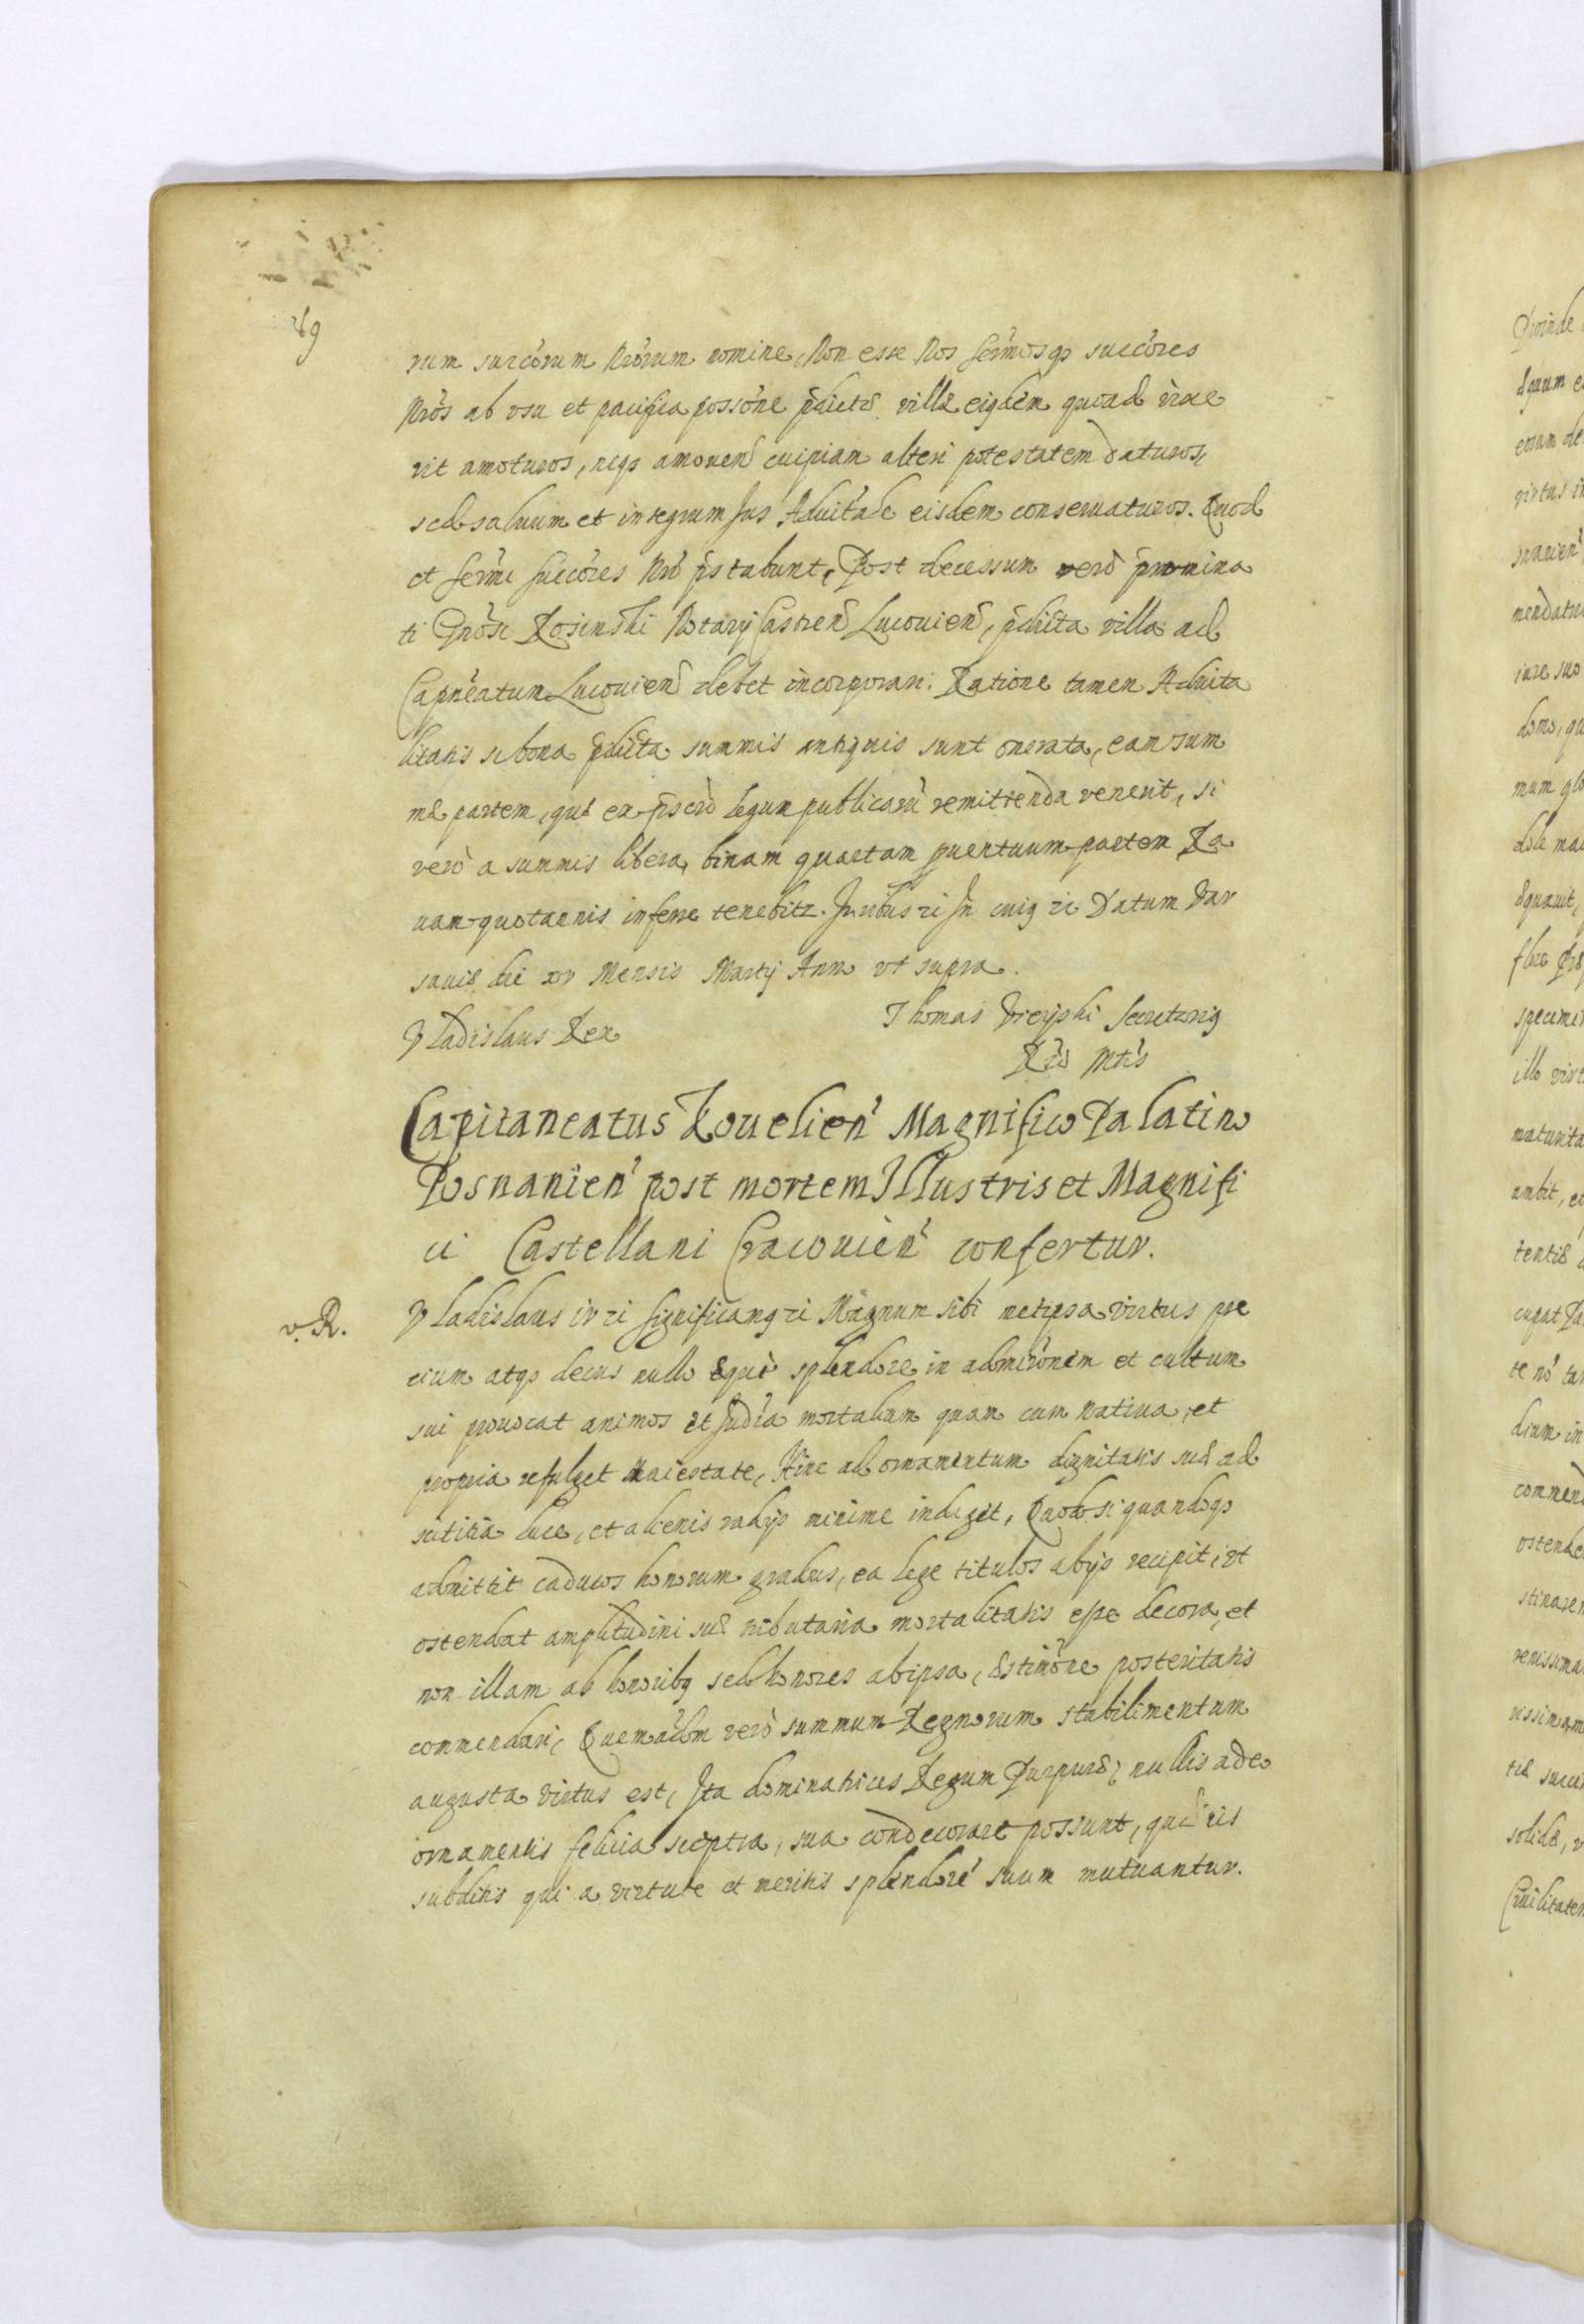 rum succorum Nrorum nomine, Non esse Nos sermosqs succores
Nros ab vsu et pacifica possone pdictæ villæ eiusdem quoad vixe
rit amoturos, neqs amouend cuipiam alteri potestatem daturos,
sed saluum et integrum Jus Aduitale eisdem conseruaturos. Quod
et sermi succores Nri pstabunt, Post decessum verò prænomina
ti Gnosi Kosinski Notarij Castren Lucouien, pdicta villa ad
Capneatum Lucouien debet incorporari. Ratione tamen Aduita
litatis si bona pdicta summis antiquis sunt onerata, eam sum
mæ partem, quæ ex pscro legum publicaru remittenda venerit, si
verò a summis libera, binam quartam puentuum partem Ra
uam quotannis inferre tenebitr. Juribus zc In cuius zc Datum Var
sauiæ die xv Mensis Martij Anno vt supra.
Vladislaus Rex
Thomas Vieyski Secretarius
Ræ Mtis
Capitaneatus Kouelien Magnifico Palatino
Posnanien post mortem Illustris et Magnifi
ci Castellani Cracouien confertur.
v. R.
Vladislaus iv zc significamus zc Magnum sibi metipsa virtus pre
cium atqs decus nullo æquè splendore in admironem et cultum
sui prouocat animos et Judia mortalium quam cum natiua, et
propria refulget Maiestate, Hinc ad ornamentum dignitatis suæ ad
scititia luce, et alienis radijs minime indiget, Quod si quandoqs
admittit caducos honorum gradus, ea lege titulos abijs recipit, vt
ostendat amplitudini suæ tributaria mortalitatis esse decora, et
non illam ab honoribus sed honores ab ipsa, æstimone posteritatis
commendari, Quemadm verò summum Regnorum stabilimentum
augusta virtus est, Ita dominatrices Regum Purpuræ, nullis adeo
ornamentis felicia sceptra, sua condecorare possunt, quàm iis
subditis qui a virtute et meritis splendore suum mutuantur.